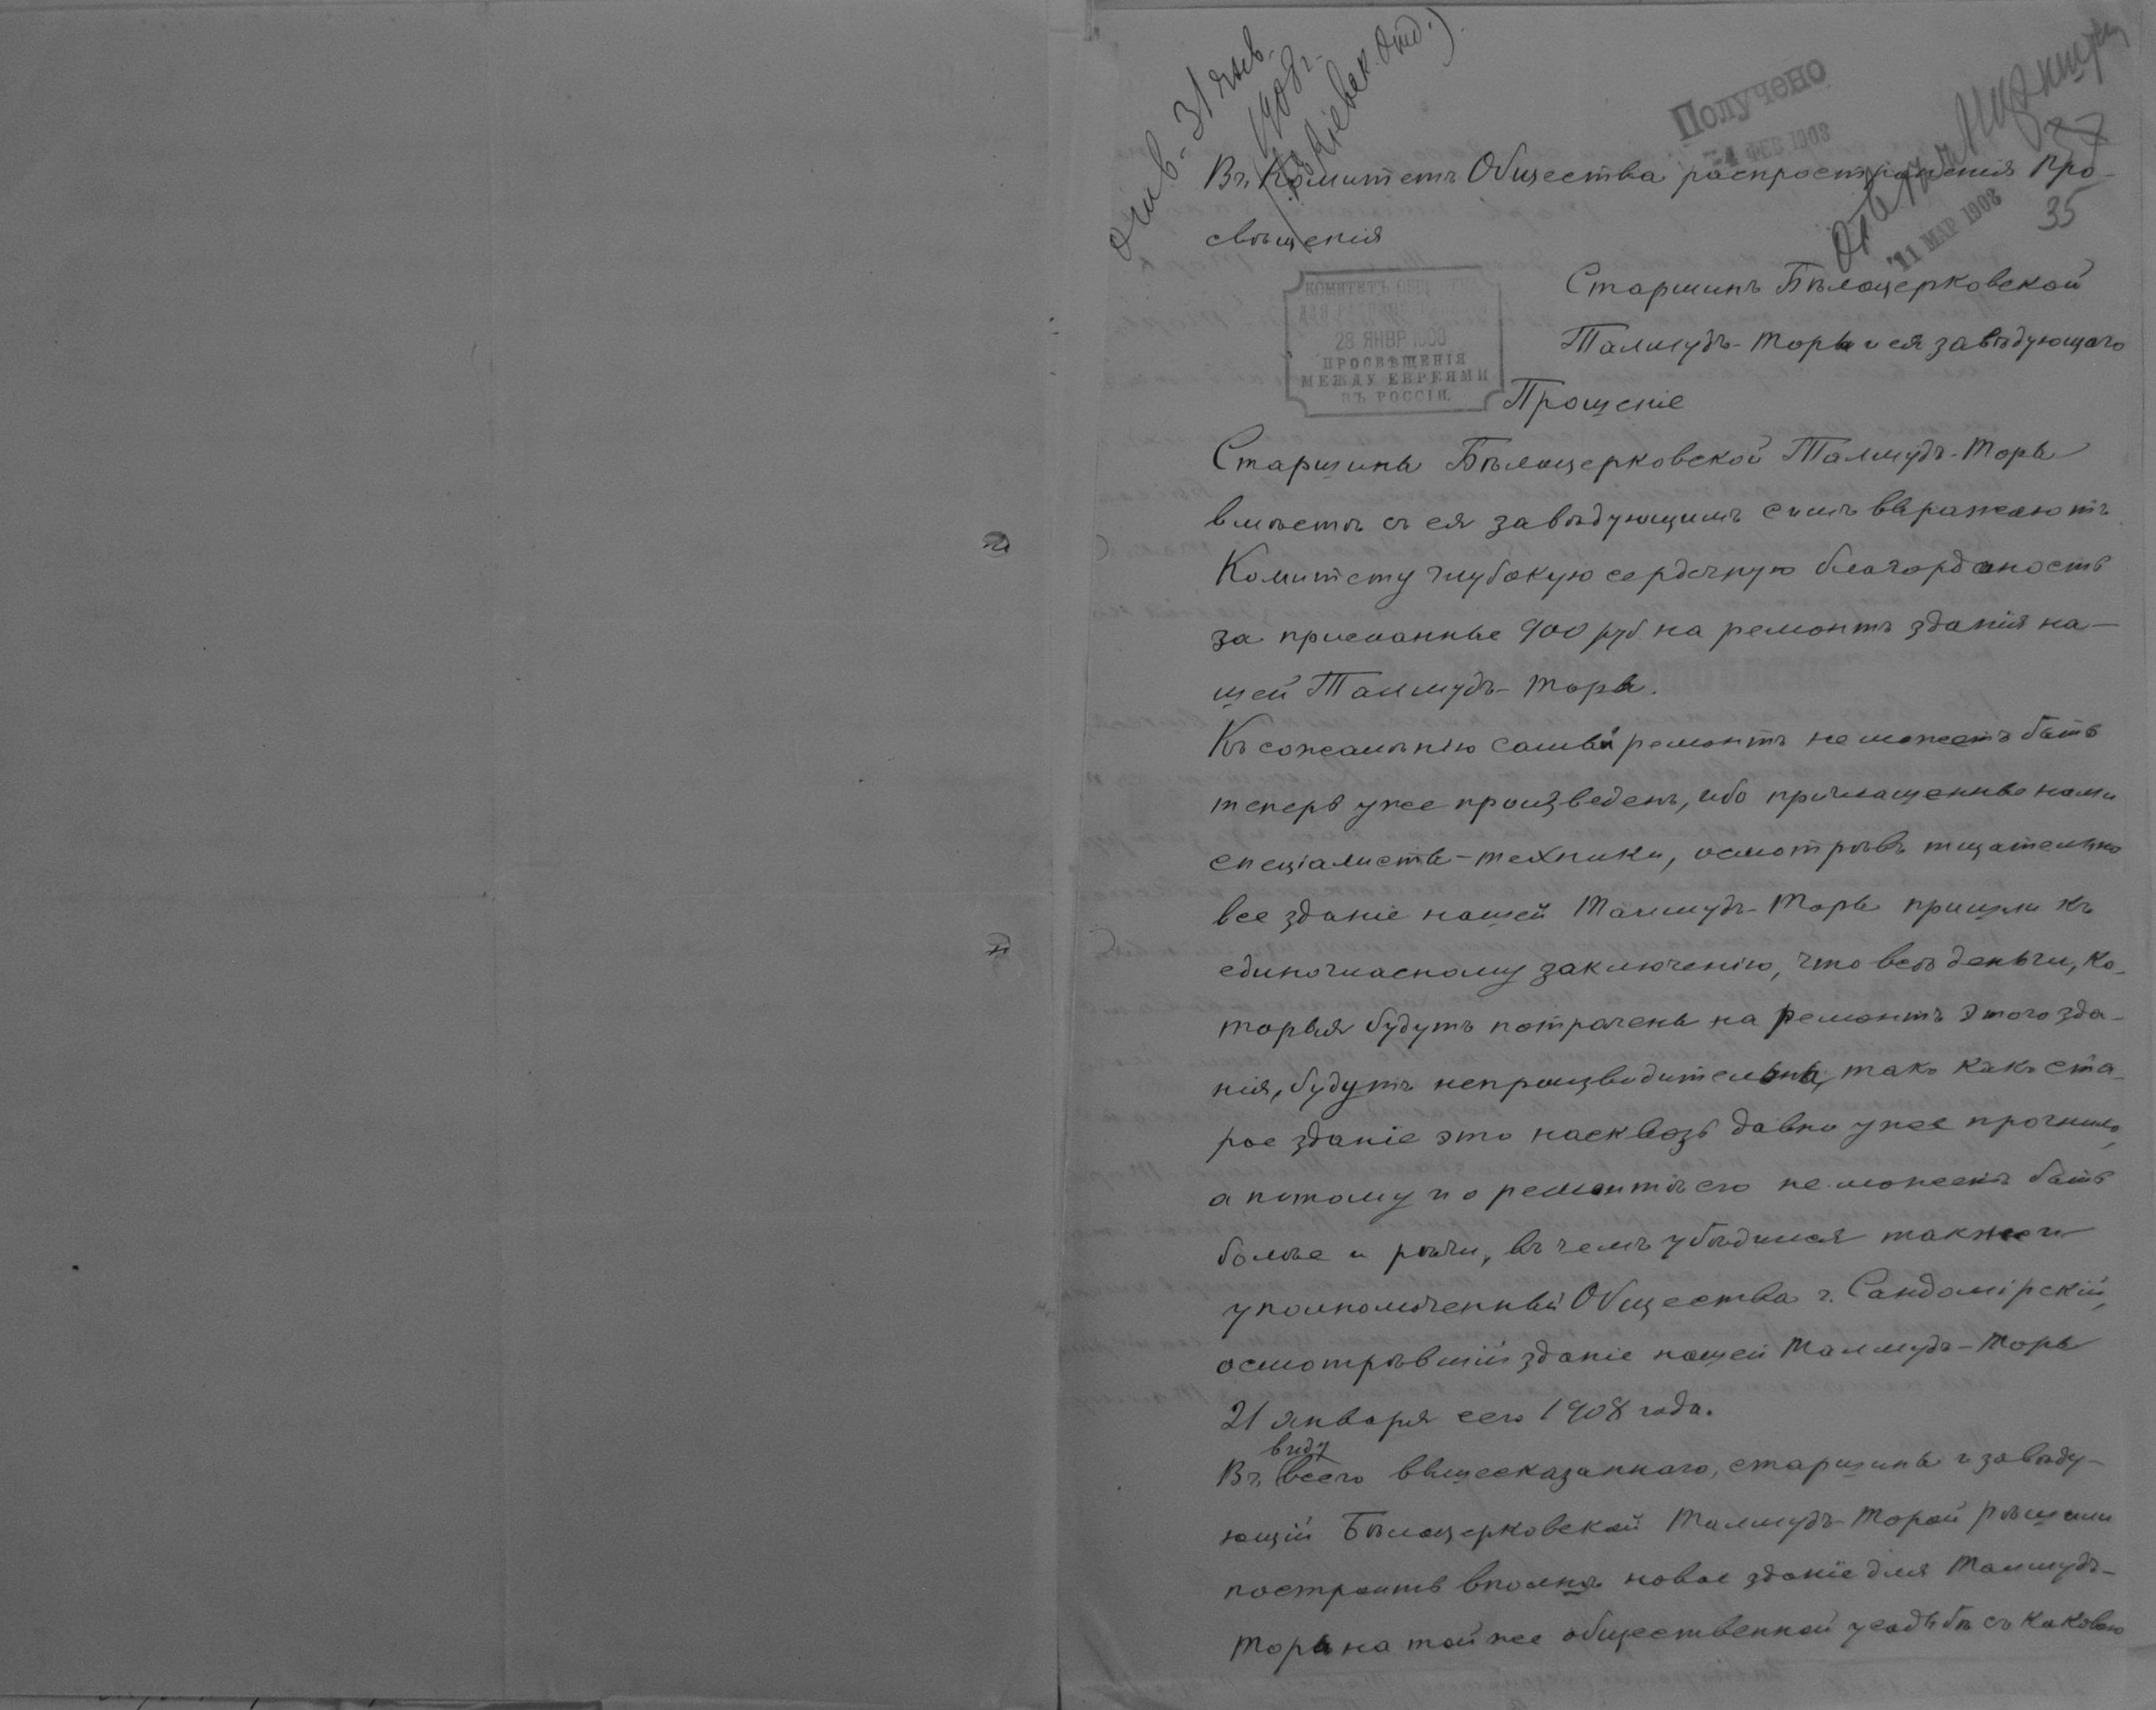 отв. 31 янв.
1908 г.
(въ Кіевск. Отд.)
Получено
-4 ФЕВ 1908
11 МАР 1908
35
Въ Комитетъ Общества распространенія Про-
свѣщенія
Старшинъ Бѣлоцерковской
Талмудъ-Торы и ея завѣдующаго
КОМИТЕТЪ
28 ЯНВР 1908
ПРОСВѢЩЕНІЯ
МЕЖДУ ЕВРЕЯМИ
ВЪ РОССІИ.
Прощеніе
Старшины Бѣлоцерковской Талмудъ-Торы
вмѣстѣ съ ея завѣдующимъ симъ выражаютъ
Комитету глубокую сердечную благорданость
за присланные 900 руб. на ремонтъ зданія на-
шей Талмудъ-Торы.
Къ сожалѣнію самый ремонтъ не можетъ быть
теперь уже произведенъ, ибо приглашенные нами
спеціалисты-техники, осмотрѣвъ тщательно
все зданіе нашей Талмудъ-Торы пришли къ
единогласному заключенію, что всѣ деньги, ко-
торыя будутъ потрачены на ремонтъ этого зда-
нія, будутъ непроизводительны, такъ какъ ста-
рое зданіе это насквозь давно уже прогнило,
а потому и о ремонтѣ его не можетъ быть
болѣе и рѣчи, въ чемъ убѣдился также и
уполномоченный Общества г. Сандомірскій,
осмотрѣвшій зданіе нашей Талмудъ-Торы
21 января сего 1908 года.
виду
Въ всего вышесказаннаго, старшины и завѣду-
ющій Бѣлоцерковской Талмудъ-Торой рѣшили
построить вполнѣ новое зданіе для Талмудъ-
Торы на той же общественной усадьбѣ съ каковою